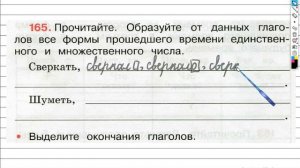 165. Прочитайте. Образуйте от данных глаго-
лов все формы прошедшего времени единствен-
ного и множественного числа.
Сверкать, сверкал, сверкала, сверк
Шуметь,
• Выделите окончания глаголов.